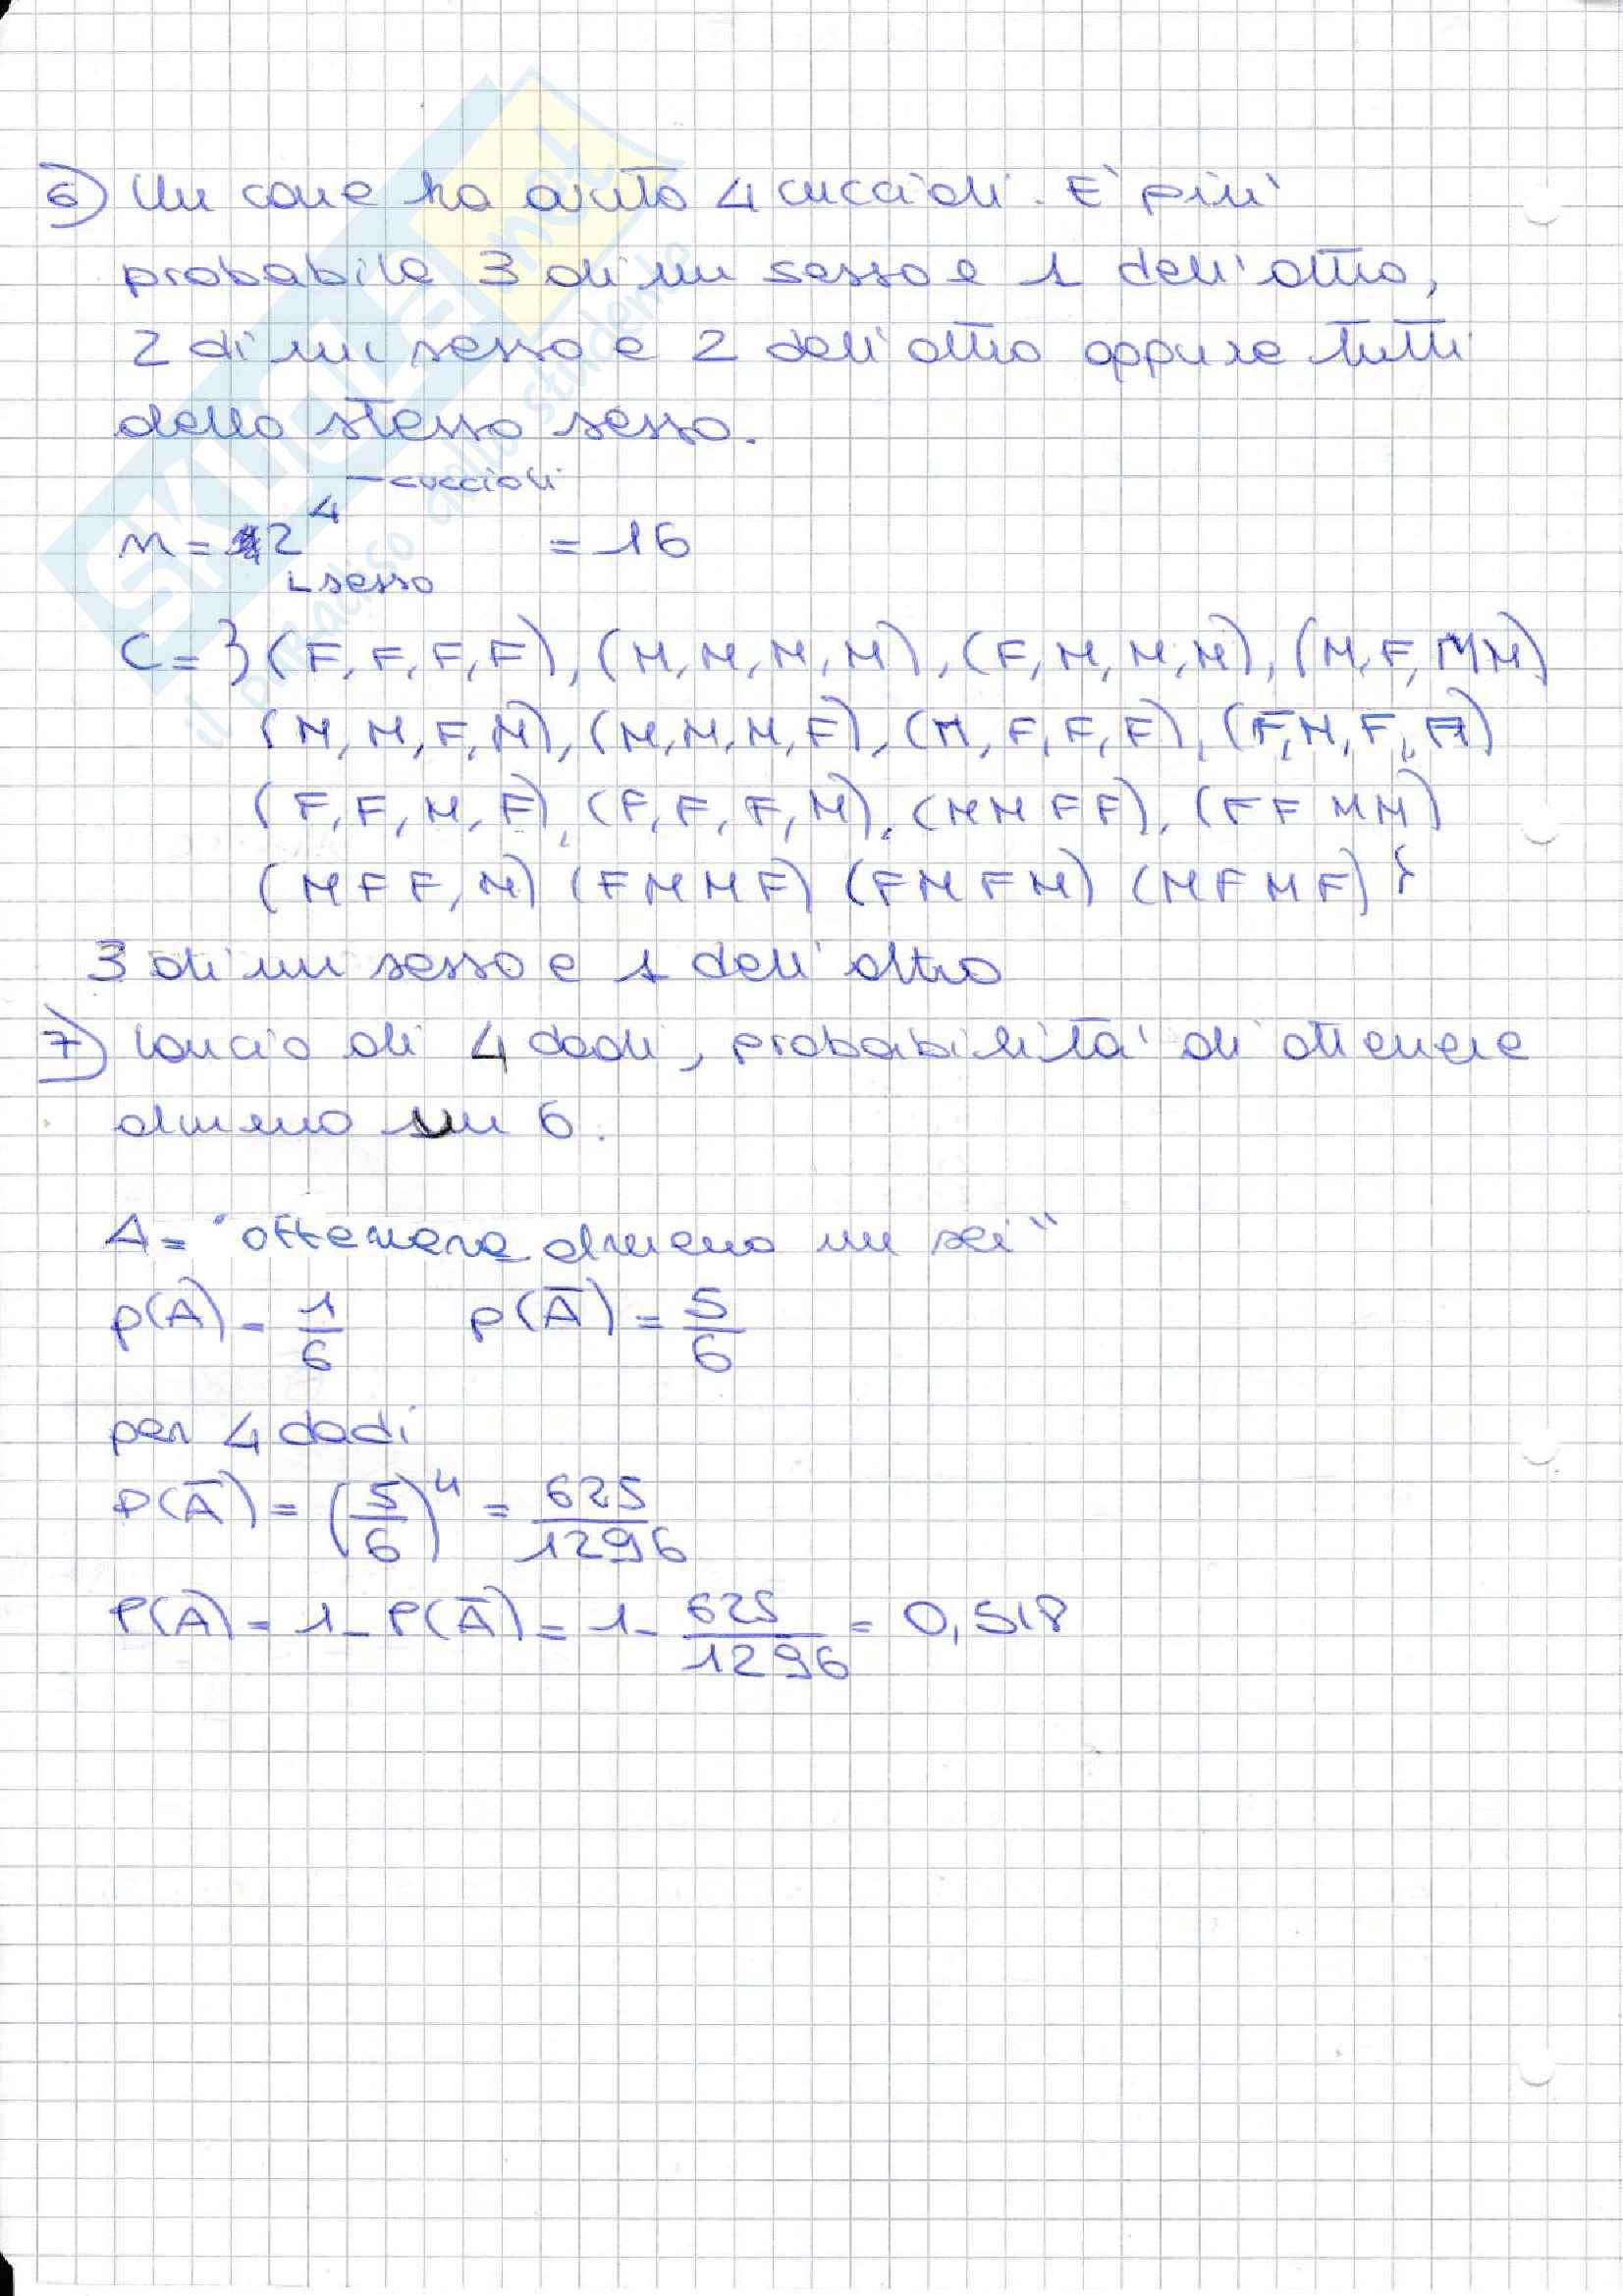 6) Un cane ha avuto 4 cuccioli. E' più
probabile 3 di un sesso e 1 dell'altro,
2 di un sesso e 2 dell'altro oppure tutti
dello stesso sesso.
4 — cuccioli
n = 2 = 16
sesso
C = } (F, F, F, F), (M, M, M, M), (F, M, M, M), (M, F, M M)
(M, M, F, M), (M, M, M, F), (M, F, F, F), (F, M, F, F)
(F, F, M, F), (F, F, F, M), (M M F F), (F F M M)
(M F F, M) (F M M F) (F M F M) (M F M F) }
3 di un sesso e 1 dell'altro
7) lancio di 4 dadi, probabilità di ottenere
almeno un 6.
A = "ottenere almeno un sei"
p(A) = 1/6 p(Ā) = 5/6
per 4 dadi
P(Ā) = (5/6)⁴ = 625/1296
P(A) = 1 - P(Ā) = 1 - 625/1296 = 0,518
SKUOLA.net
il paradiso dello studente